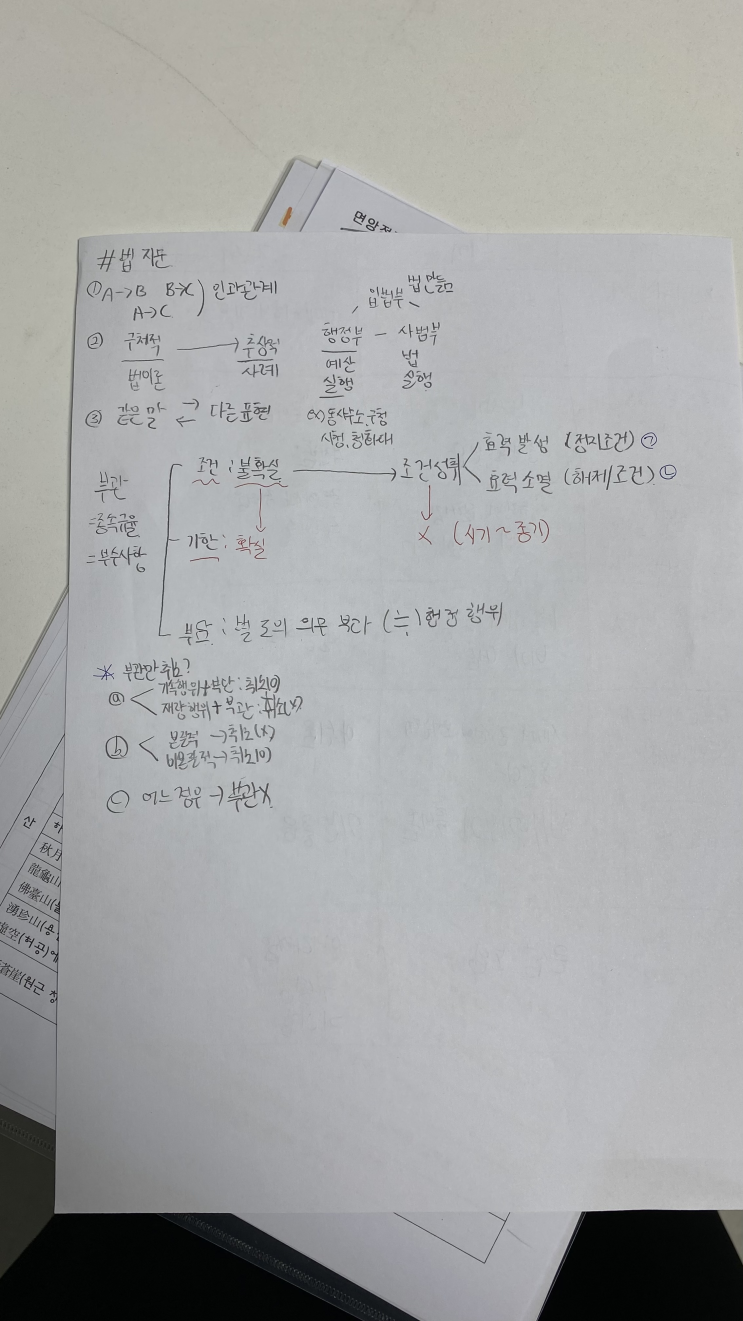 면앙정
# 법 지문
① A→B B→C ) 인과관계
A→C
② 구체적 → 추상적
법이론 사례
입법부 법만듦
행정부 - 사법부
예산 법
실행 실행
ex) 동사무소, 구청
시청, 청와대
③ 같은 말 ⇄ 다른 표현
부관
=종속규율
=부수사항
조건 : 불확실 → 조건성취
효력 발생 (정지조건) ㉠
효력 소멸 (해제조건) ㉡
기한 : 확실
X (시기~종기)
부담 : 별도의 의무 부과 (≒) 행정 행위
* 부관만 취소?
ⓐ 기속행위+부관 : 취소(O)
재량행위+부관 : 취소(X)
ⓑ 본질적 → 취소(X)
비본질적 → 취소(O)
ⓒ 어느 경우 → 부관X
산
秋月
龍龜山
佛臺山
湧珍山
(허공)에
蒼崖(원근 창